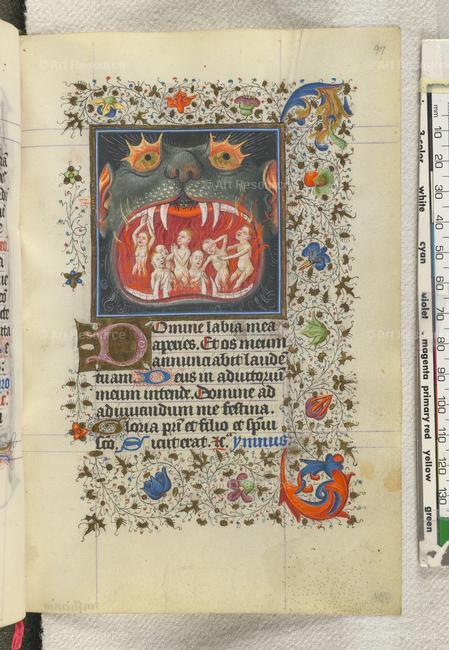 97
Domine labia mea
aperies. Et os meum
annunciabit laudē
tuam. Deus in adiutoriū
meum intende. Domine ad
adiuuandum me festina.
Gloria pr̄i et filio et spūi
sc̄o. Sicut erat. &c. ymnus
© Art Resource
mm 10 20 30 40 50 60 70 80 90 100 110 120 130
3 color white cyan violet magenta primary red yellow green